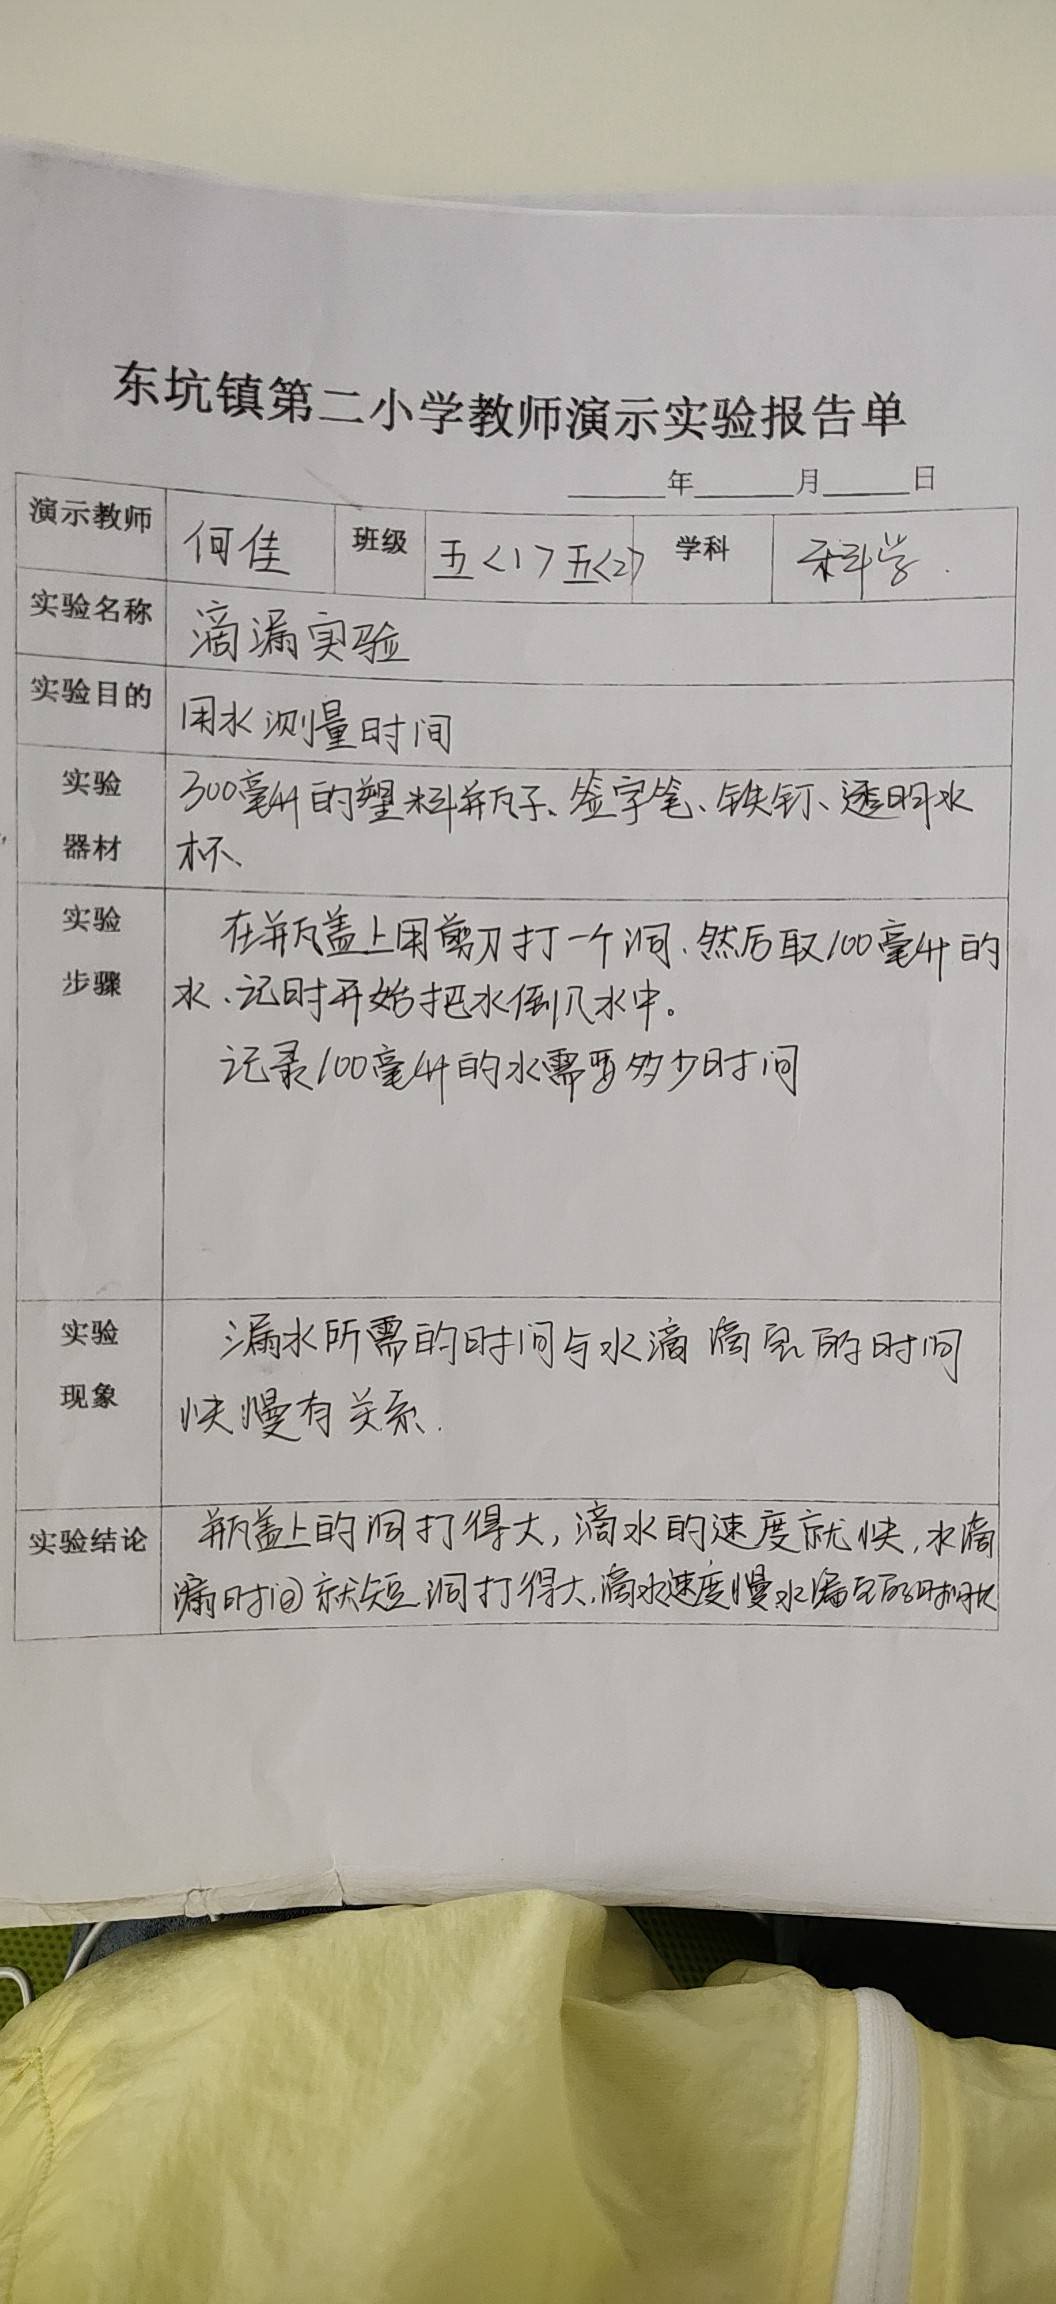 东坑镇第二小学教师演示实验报告单
年 月 日
演示教师 何佳 班级 五<1>五<2> 学科 科学.
实验名称 滴漏实验
实验目的 用水测量时间
实验 300毫升的塑料瓶子、签字笔、铁钉、透明水
器材 杯、
实验 在瓶盖上用剪刀打一个洞、然后取100毫升的
步骤 水、记时开始把水倒入水中。
记录100毫升的水需要多少时间
实验 漏水所需的时间与水滴滴完的时间
现象 快慢有关系.
实验结论 瓶盖上的洞打得大,滴水的速度就快,水滴
漏时间就短.洞打得大,滴水速度慢水漏完的时间